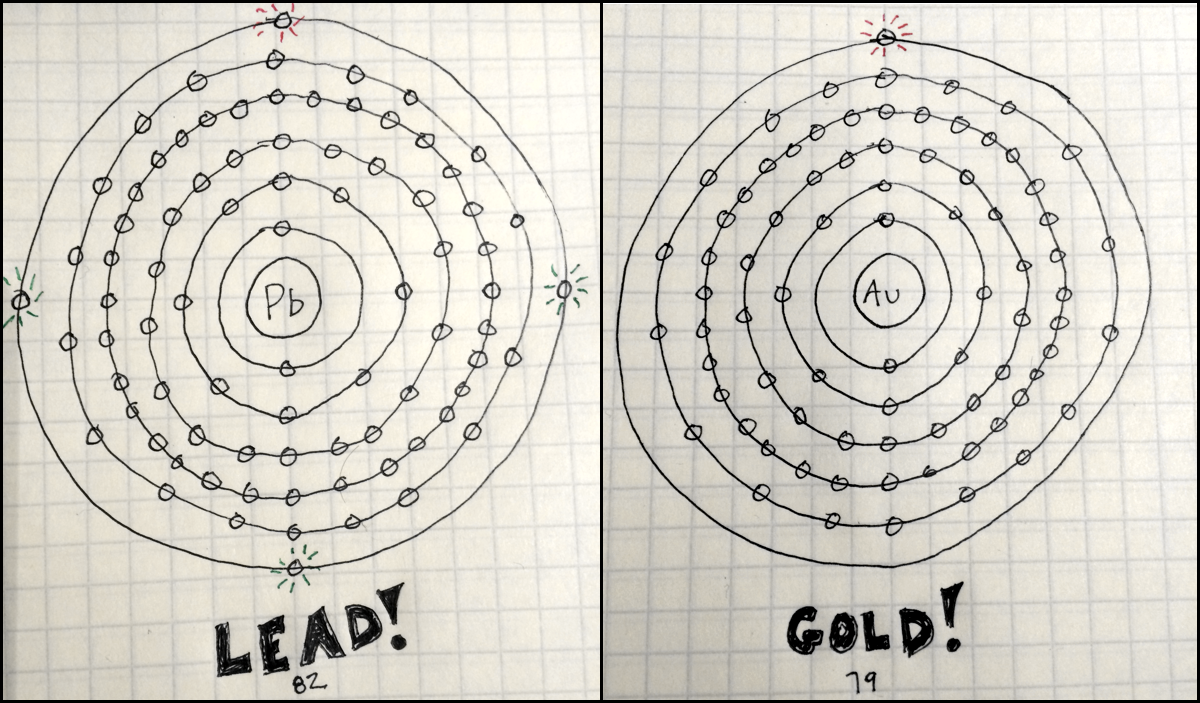 Pb
LEAD!
82
Au
GOLD!
79